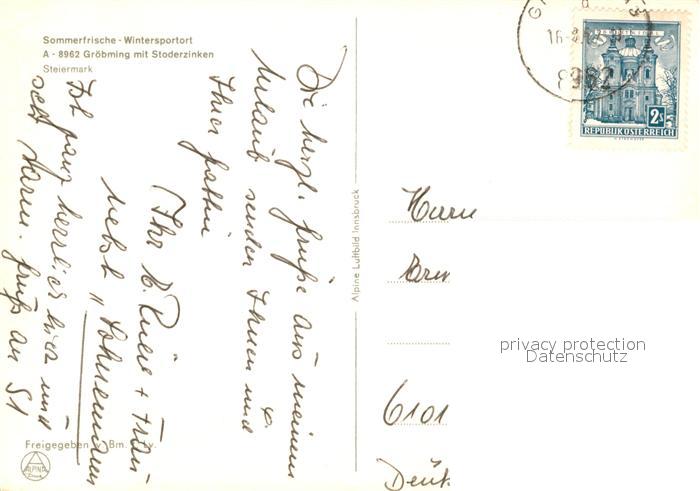 Sommerfrische - Wintersportort
A - 8962 Gröbming mit Stoderzinken
Steiermark
Die herzl. Grüße aus meinem
Urlaub senden Ihnen und
Ihrer Gattin
Ihr + Frau
nebst "
Ist ganz herrlich hier und
sehr warm. Gruß an
Freigegeben v. Bm. f. Lv.
ALPINE
Alpine Luftbild Innsbruck
16-
8962
2s
REPUBLIK ÖSTERREICH
Herrn
6101
privacy protection
Datenschutz